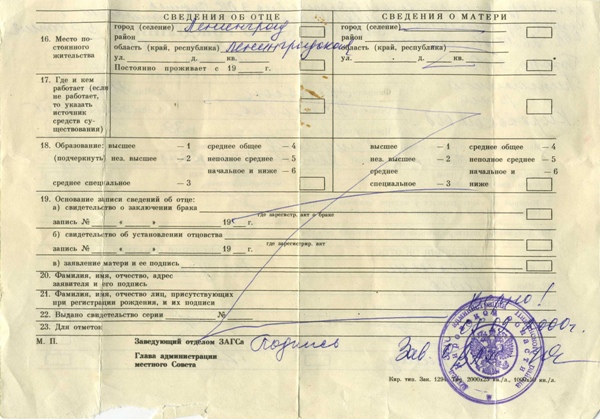 СВЕДЕНИЯ ОБ ОТЦЕ СВЕДЕНИЯ О МАТЕРИ
16. Место постоянного жительства
город (селение) Ленинград
район
область (край, республика) Ленинградская
ул. д. кв.
Постоянно проживает с 19 г.
город (селение)
район
область (край, республика)
ул. д. кв.
17. Где и кем
работает (если
не работает,
то указать
источник
средств су-
ществования)
18. Образование: высшее —1 среднее общее —4 высшее —1 среднее общее —4
(подчеркнуть) нез. высшее —2 неполное среднее —5 нез. высшее —2 неполное среднее —5
начальное и ниже —6 среднее начальное и —6
среднее специальное —3 специальное —3 ниже
19. Основание записи сведений об отце:
а) свидетельство о заключении брака
где зарегистр. акт о браке
запись № « » 19 г.
б) свидетельство об установлении отцовства
запись № « » 19 г. где зарегистрир. акт
в) заявление матери и ее подпись
20. Фамилия, имя, отчество, адрес
заявителя и его подпись
21. Фамилия, имя, отчество лиц, присутствующих
при регистрации рождения, и их подписи
22. Выдано свидетельство серии №
23. Для отметок
Верно!
2000г.
М. П. Заведующий отделом ЗАГСа Подпись Зав.
Глава администрации
местного Совета
Кир. тип. Зак. 1294. Тир. 2000х25 кн./л., 1000х50 кн./л.